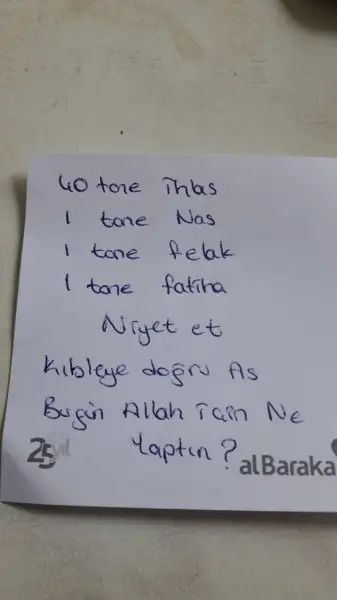 40 tane ihlas
1 tane Nas
1 tane felak
1 tane fatiha
Niyet et
kıbleye doğru As
Bugün Allah için Ne
Yaptın?
25 yıl
alBaraka